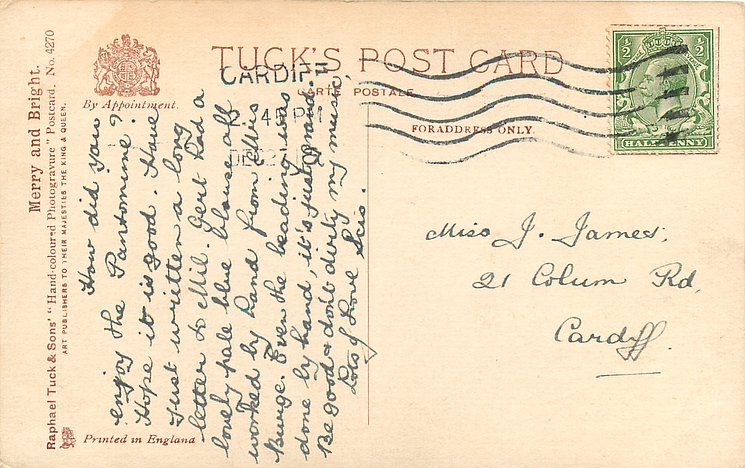 TUCK'S POST CARD
CARTE POSTALE
By Appointment.
FOR ADDRESS ONLY.
CARDIFF
45 PM
DEC 2
1/2 1/2
HALFPENNY
Merry and Bright.
Raphael Tuck & Sons' "Hand-coloured Photogravure" Postcard. No. 4270
ART PUBLISHERS TO THEIR MAJESTIES THE KING & QUEEN.
Printed in England
How did you
enjoy the Pantomime?
Hope it is good. Have
just written a long
letter to Mil. Gert had a
lovely pale blue blouse all
worked by hand from Miss
Burge. Even the beading was
done by hand, it's just grand.
Be good & don't dirty my music.
Lots of Love Scis.
Miss J. James,
21 Colum Rd,
Cardiff.